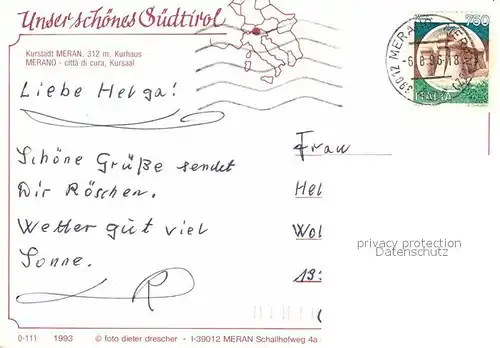 Unser schönes Südtirol
Kurstadt MERAN, 312 m, Kurhaus
MERANO - città di cura, Kursaal
750
39012 MERANO MERAN
ITALIA
Liebe Helga!
Schöne Grüße sendet
Dir Röschen.
Wetter gut viel
Sonne.
R
Frau
Hel
Wol
privacy protection
Datenschutz
0-111 1993 © foto dieter drescher - I-39012 MERAN Schallhofweg 4a